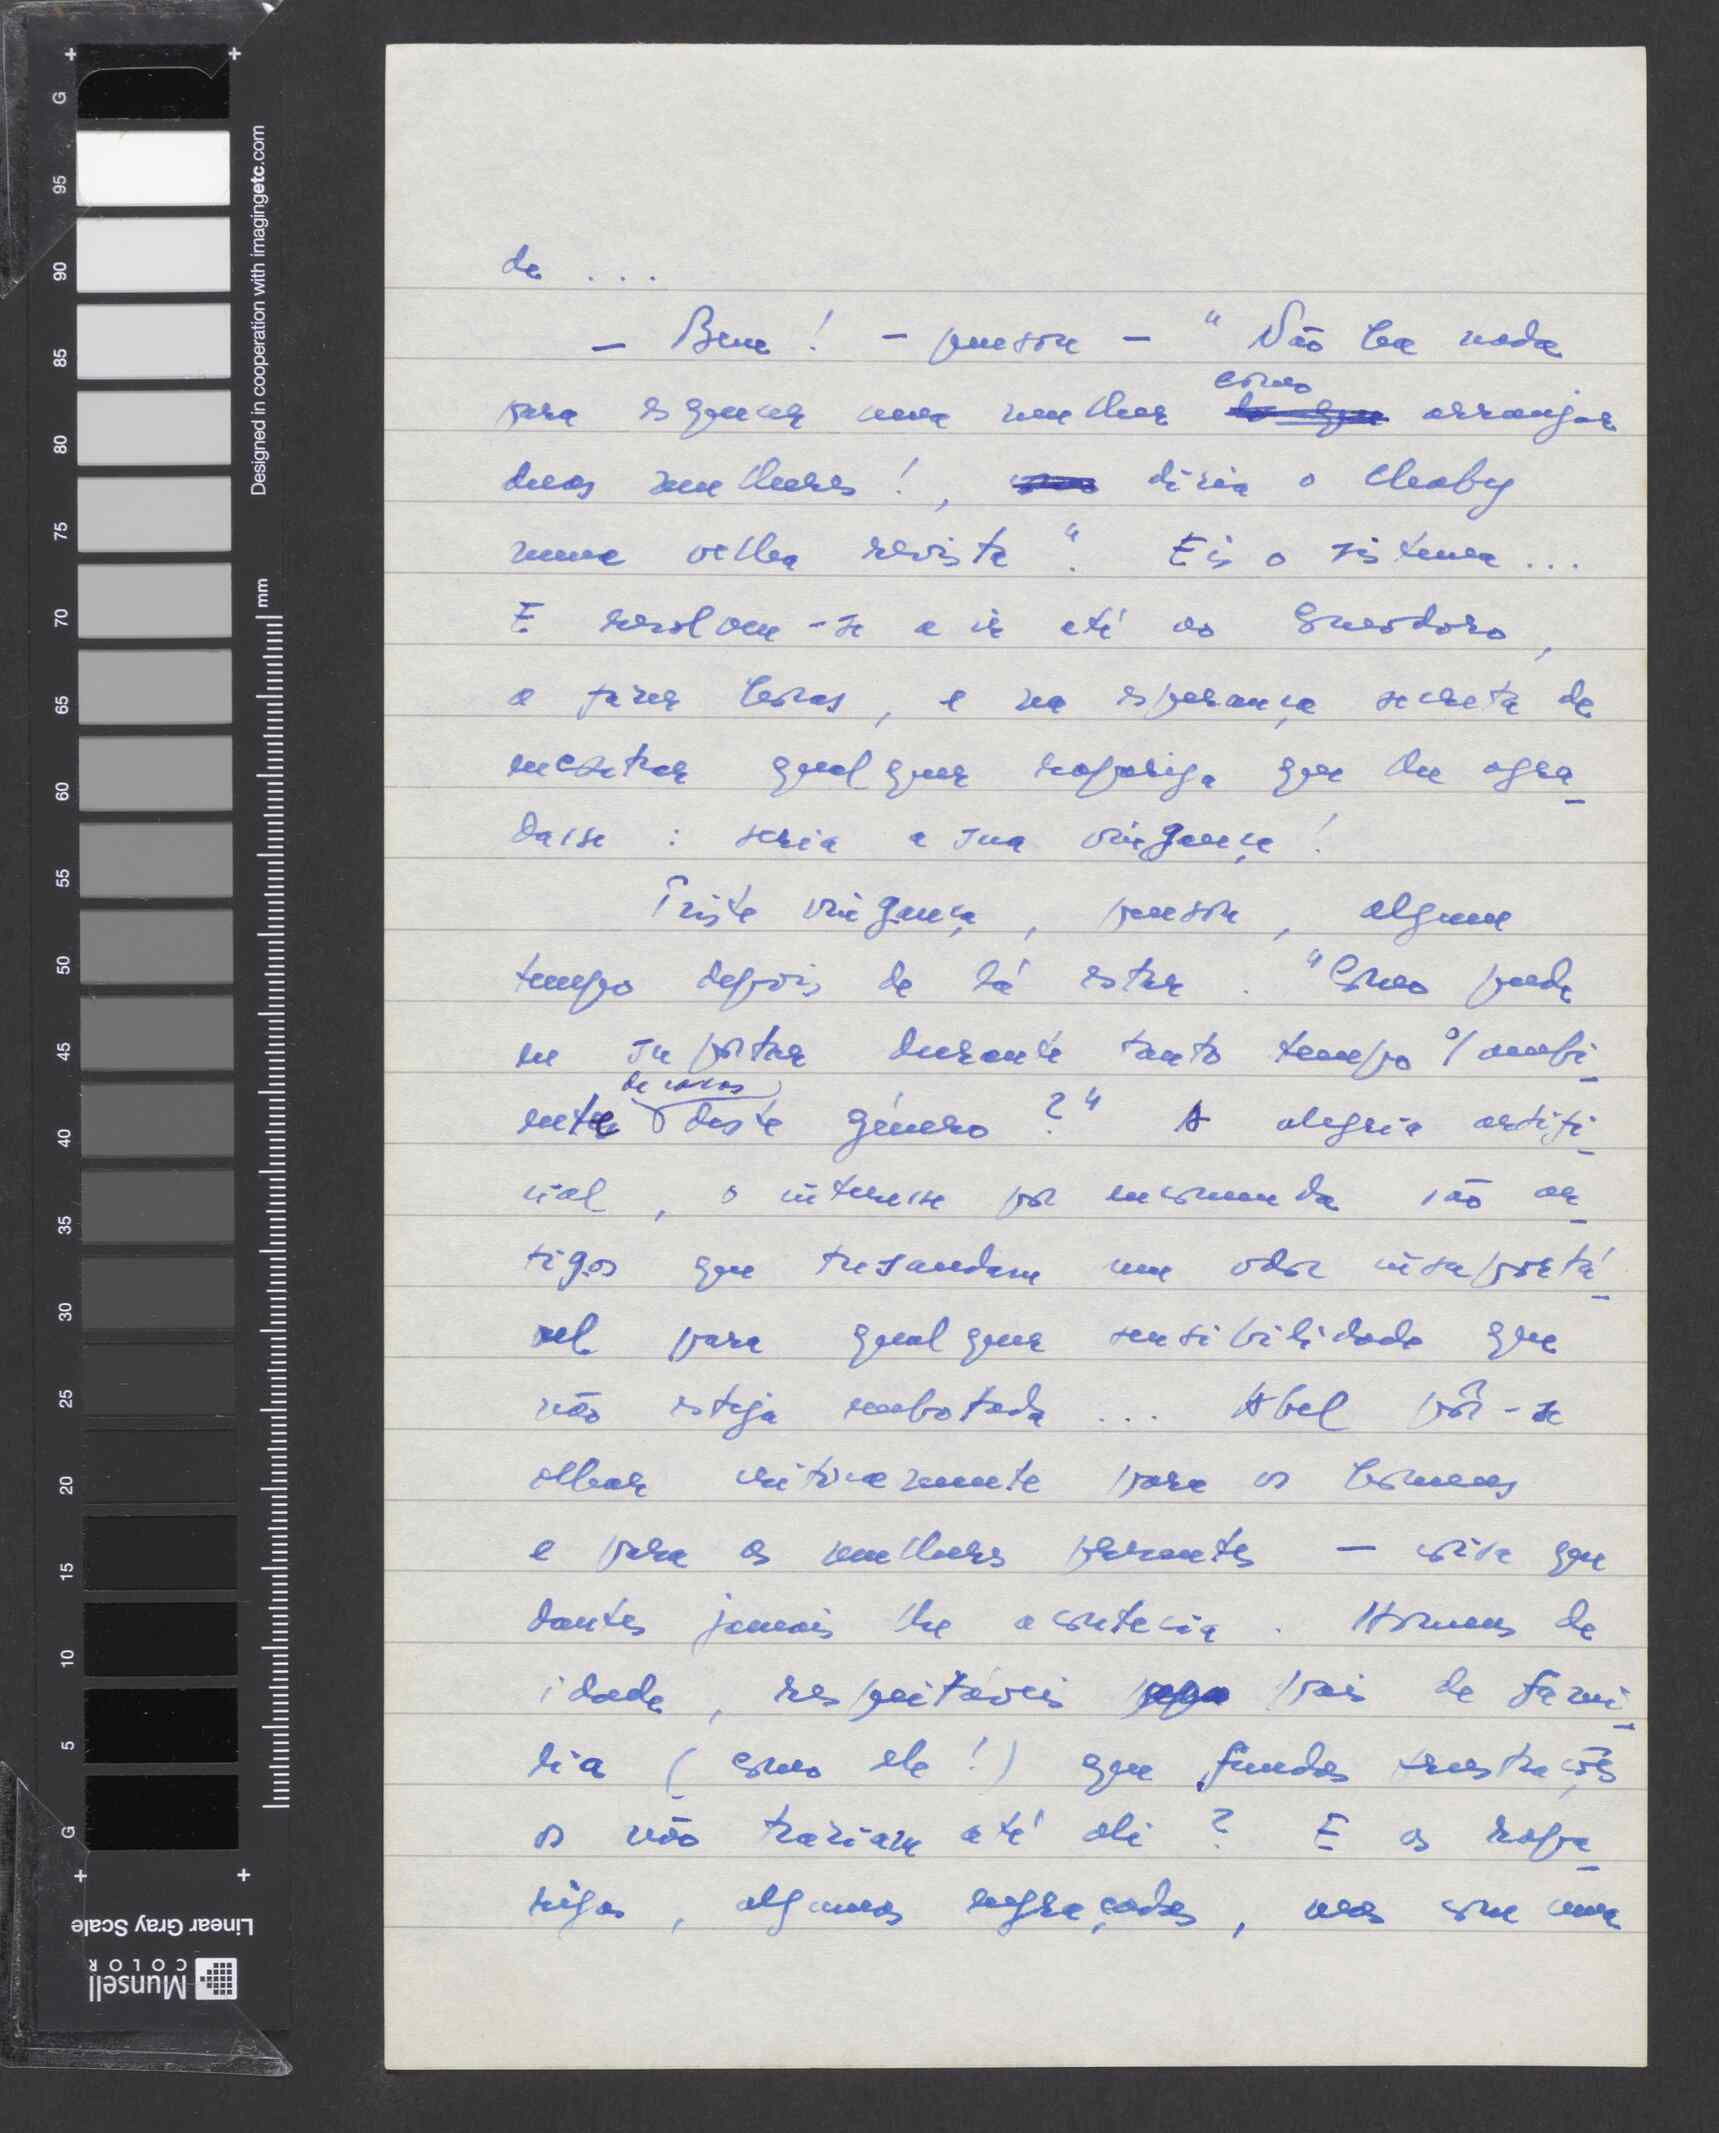 de ...
— Bem! — pensou — "Não ha nada
como
para esquecer uma mulher do que arranjar
duas mulheres!, diria o Chaby
numa velha revista". Eis o sistema...
E resolveu-se a ir até ao Gruodoro,
a fazer horas, e na esperança secreta de
encontrar qualquer rapariga que lhe agra-
dasse: seria a sua vingança!
Triste vingança, pensou, algum
tempo depois de lá estar. "Como pude
eu suportar durante tanto tempo o ambi-
de casas
ente deste género?" A alegria artifi-
cial, o interesse por encomenda são ar-
tigos que tresandam um odor insuportá-
vel para qualquer sensibilidade que
não esteja embotada... Abel pôs-se
olhar criticamente para os homens
e para as mulheres presentes — coisa que
dantes jamais lhe acontecia. Homens de
idade, respeitáveis pais de famí-
lia (como ele!) que fundas frustrações
os não trariam até ali? E as rapa-
rigas, algumas engraçadas, mas com uma
G
95
90
85
80
75
70
65
60
55
50
45
40
35
30
25
20
15
10
5
G
Designed in cooperation with imagingetc.com
mm
Linear Gray Scale
Munsell
COLOR